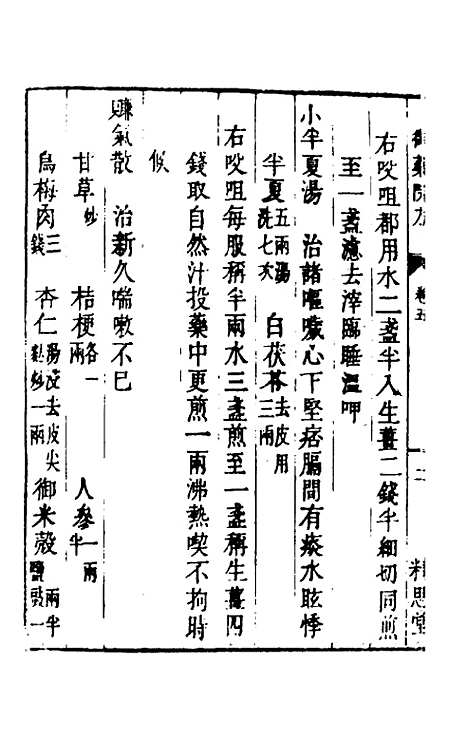 御藥院方 卷五 二 精思堂
右㕮咀都用水二盞半入生薑二錢半細切同煎
至一盞濾去滓臨睡溫呷
小半夏湯 治諸嘔噦心下堅痞膈間有痰水眩悸
半夏五兩湯洗七次 白茯苓去皮用三兩
右㕮咀每服稱半兩水三盞煎至一盞稱生薑四
錢取自然汁投藥中更煎一兩沸熱喫不拘時
候
賺氣散 治新久喘嗽不已
甘草炒 桔梗各一兩 人參一兩半
烏梅肉三錢 杏仁湯浸去皮尖麩炒一兩 御米殼兩半